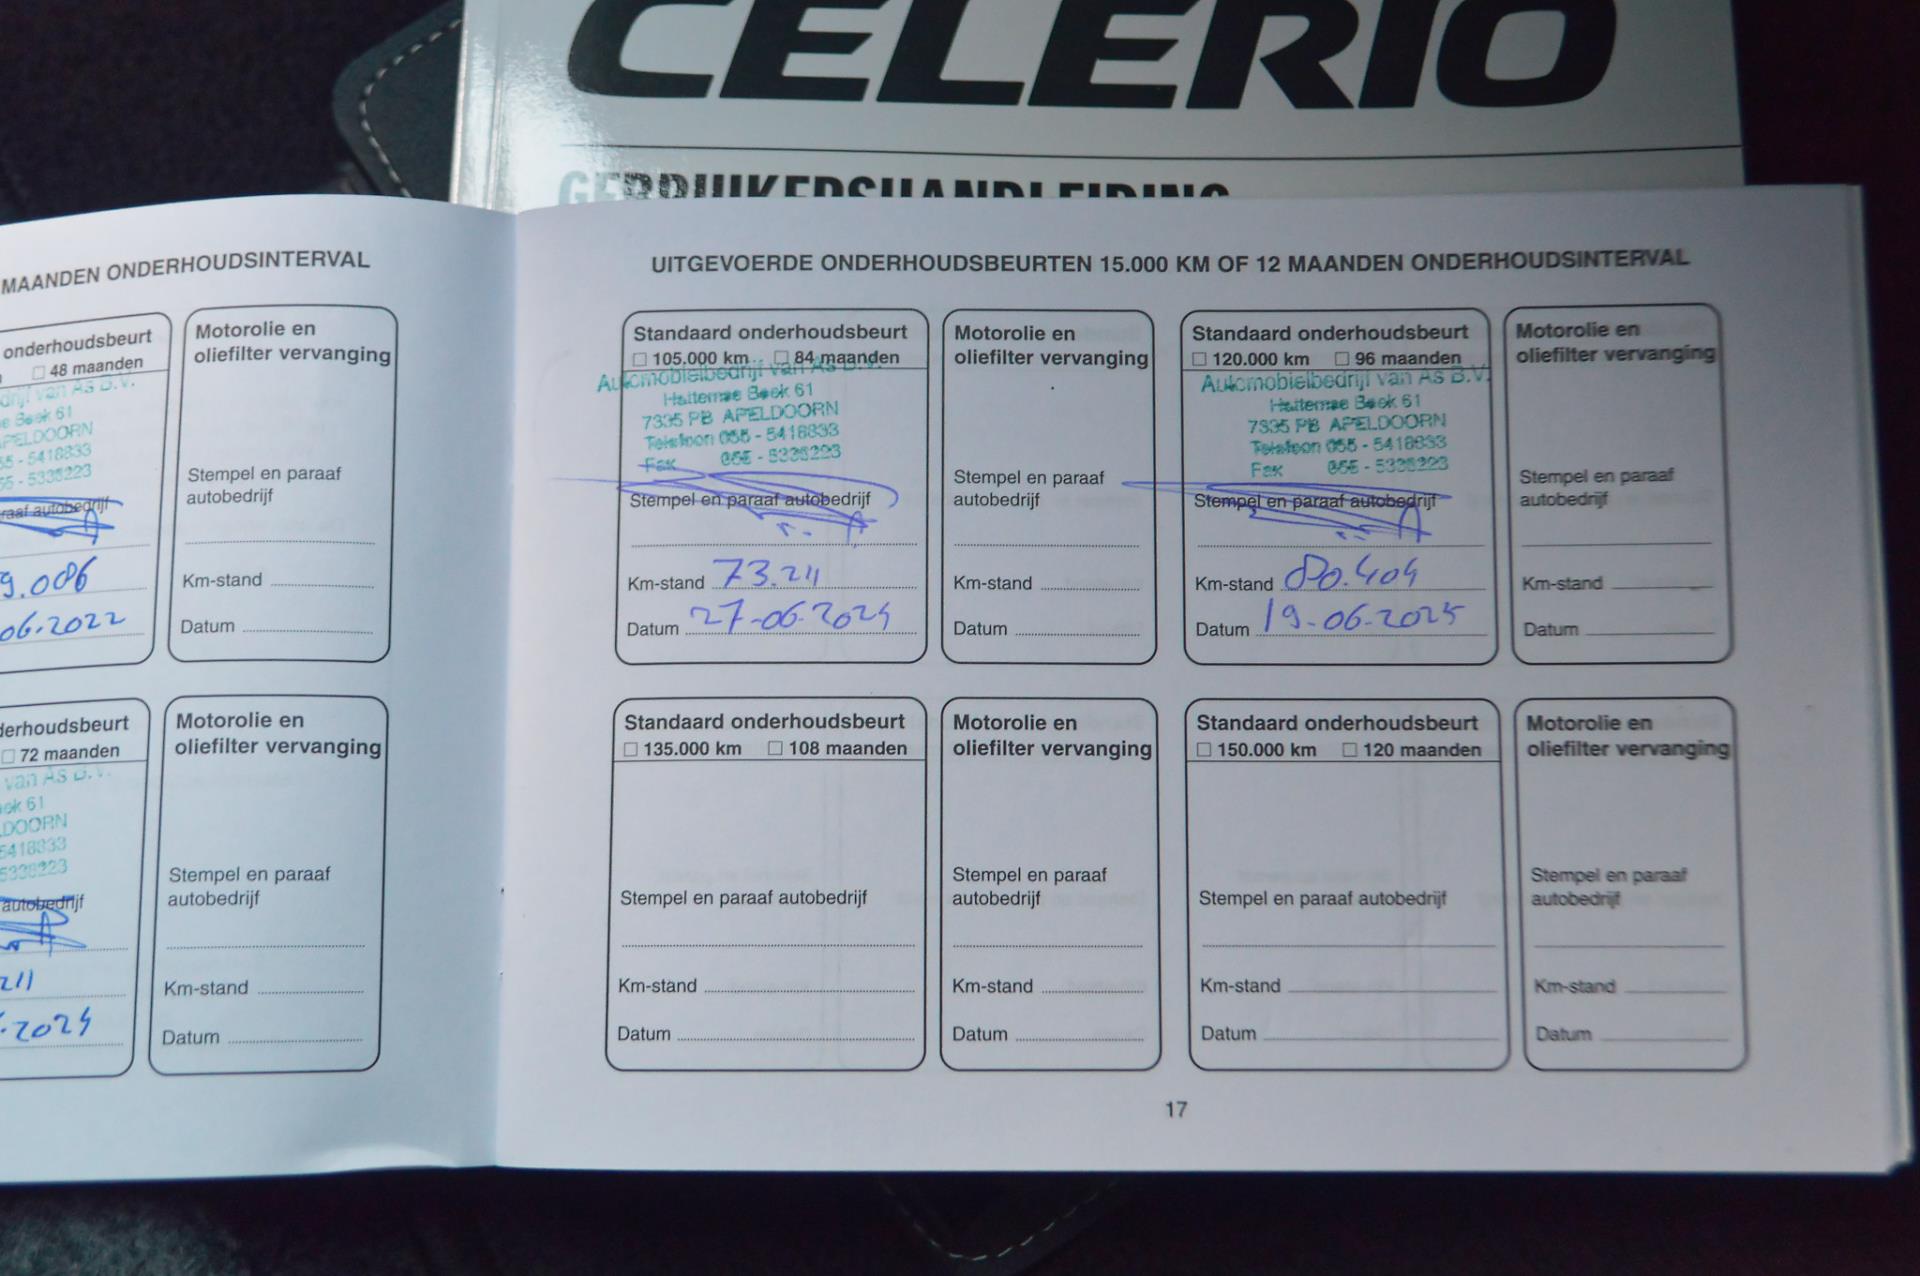 CELERIO
GEBRUIKERSHANDLEIDING
MAANDEN ONDERHOUDSINTERVAL
onderhoudsbeurt
48 maanden
van As B.V.
Beek 61
APELDOORN
55 - 5418833
55 - 5335223
paraaf autobedrijf
9.086
06-2022
Motorolie en
oliefilter vervanging
Stempel en paraaf
autobedrijf
Km-stand
Datum
derhoudsbeurt
72 maanden
van As B.V.
61
DOORN
5418833
5335223
autobedrijf
211
.2024
Motorolie en
oliefilter vervanging
Stempel en paraaf
autobedrijf
Km-stand
Datum
UITGEVOERDE ONDERHOUDSBEURTEN 15.000 KM OF 12 MAANDEN ONDERHOUDSINTERVAL
Standaard onderhoudsbeurt
105.000 km 84 maanden
Automobielbedrijf van As B.V.
Hattemse Beek 61
7335 PB APELDOORN
Telefoon 055 - 5418833
Fax 055 - 5335223
Stempel en paraaf autobedrijf
Km-stand 73.211
Datum 27-06-2024
Motorolie en
oliefilter vervanging
Stempel en paraaf
autobedrijf
Km-stand
Datum
Standaard onderhoudsbeurt
120.000 km 96 maanden
Automobielbedrijf van As B.V.
Hattemse Beek 61
7335 PB APELDOORN
Telefoon 055 - 5418833
Fax 055 - 5335223
Stempel en paraaf autobedrijf
Km-stand 80.404
Datum 19-06-2025
Motorolie en
oliefilter vervanging
Stempel en paraaf
autobedrijf
Km-stand
Datum
Standaard onderhoudsbeurt
135.000 km 108 maanden
Stempel en paraaf autobedrijf
Km-stand
Datum
Motorolie en
oliefilter vervanging
Stempel en paraaf
autobedrijf
Km-stand
Datum
Standaard onderhoudsbeurt
150.000 km 120 maanden
Stempel en paraaf autobedrijf
Km-stand
Datum
Motorolie en
oliefilter vervanging
Stempel en paraaf
autobedrijf
Km-stand
Datum
17